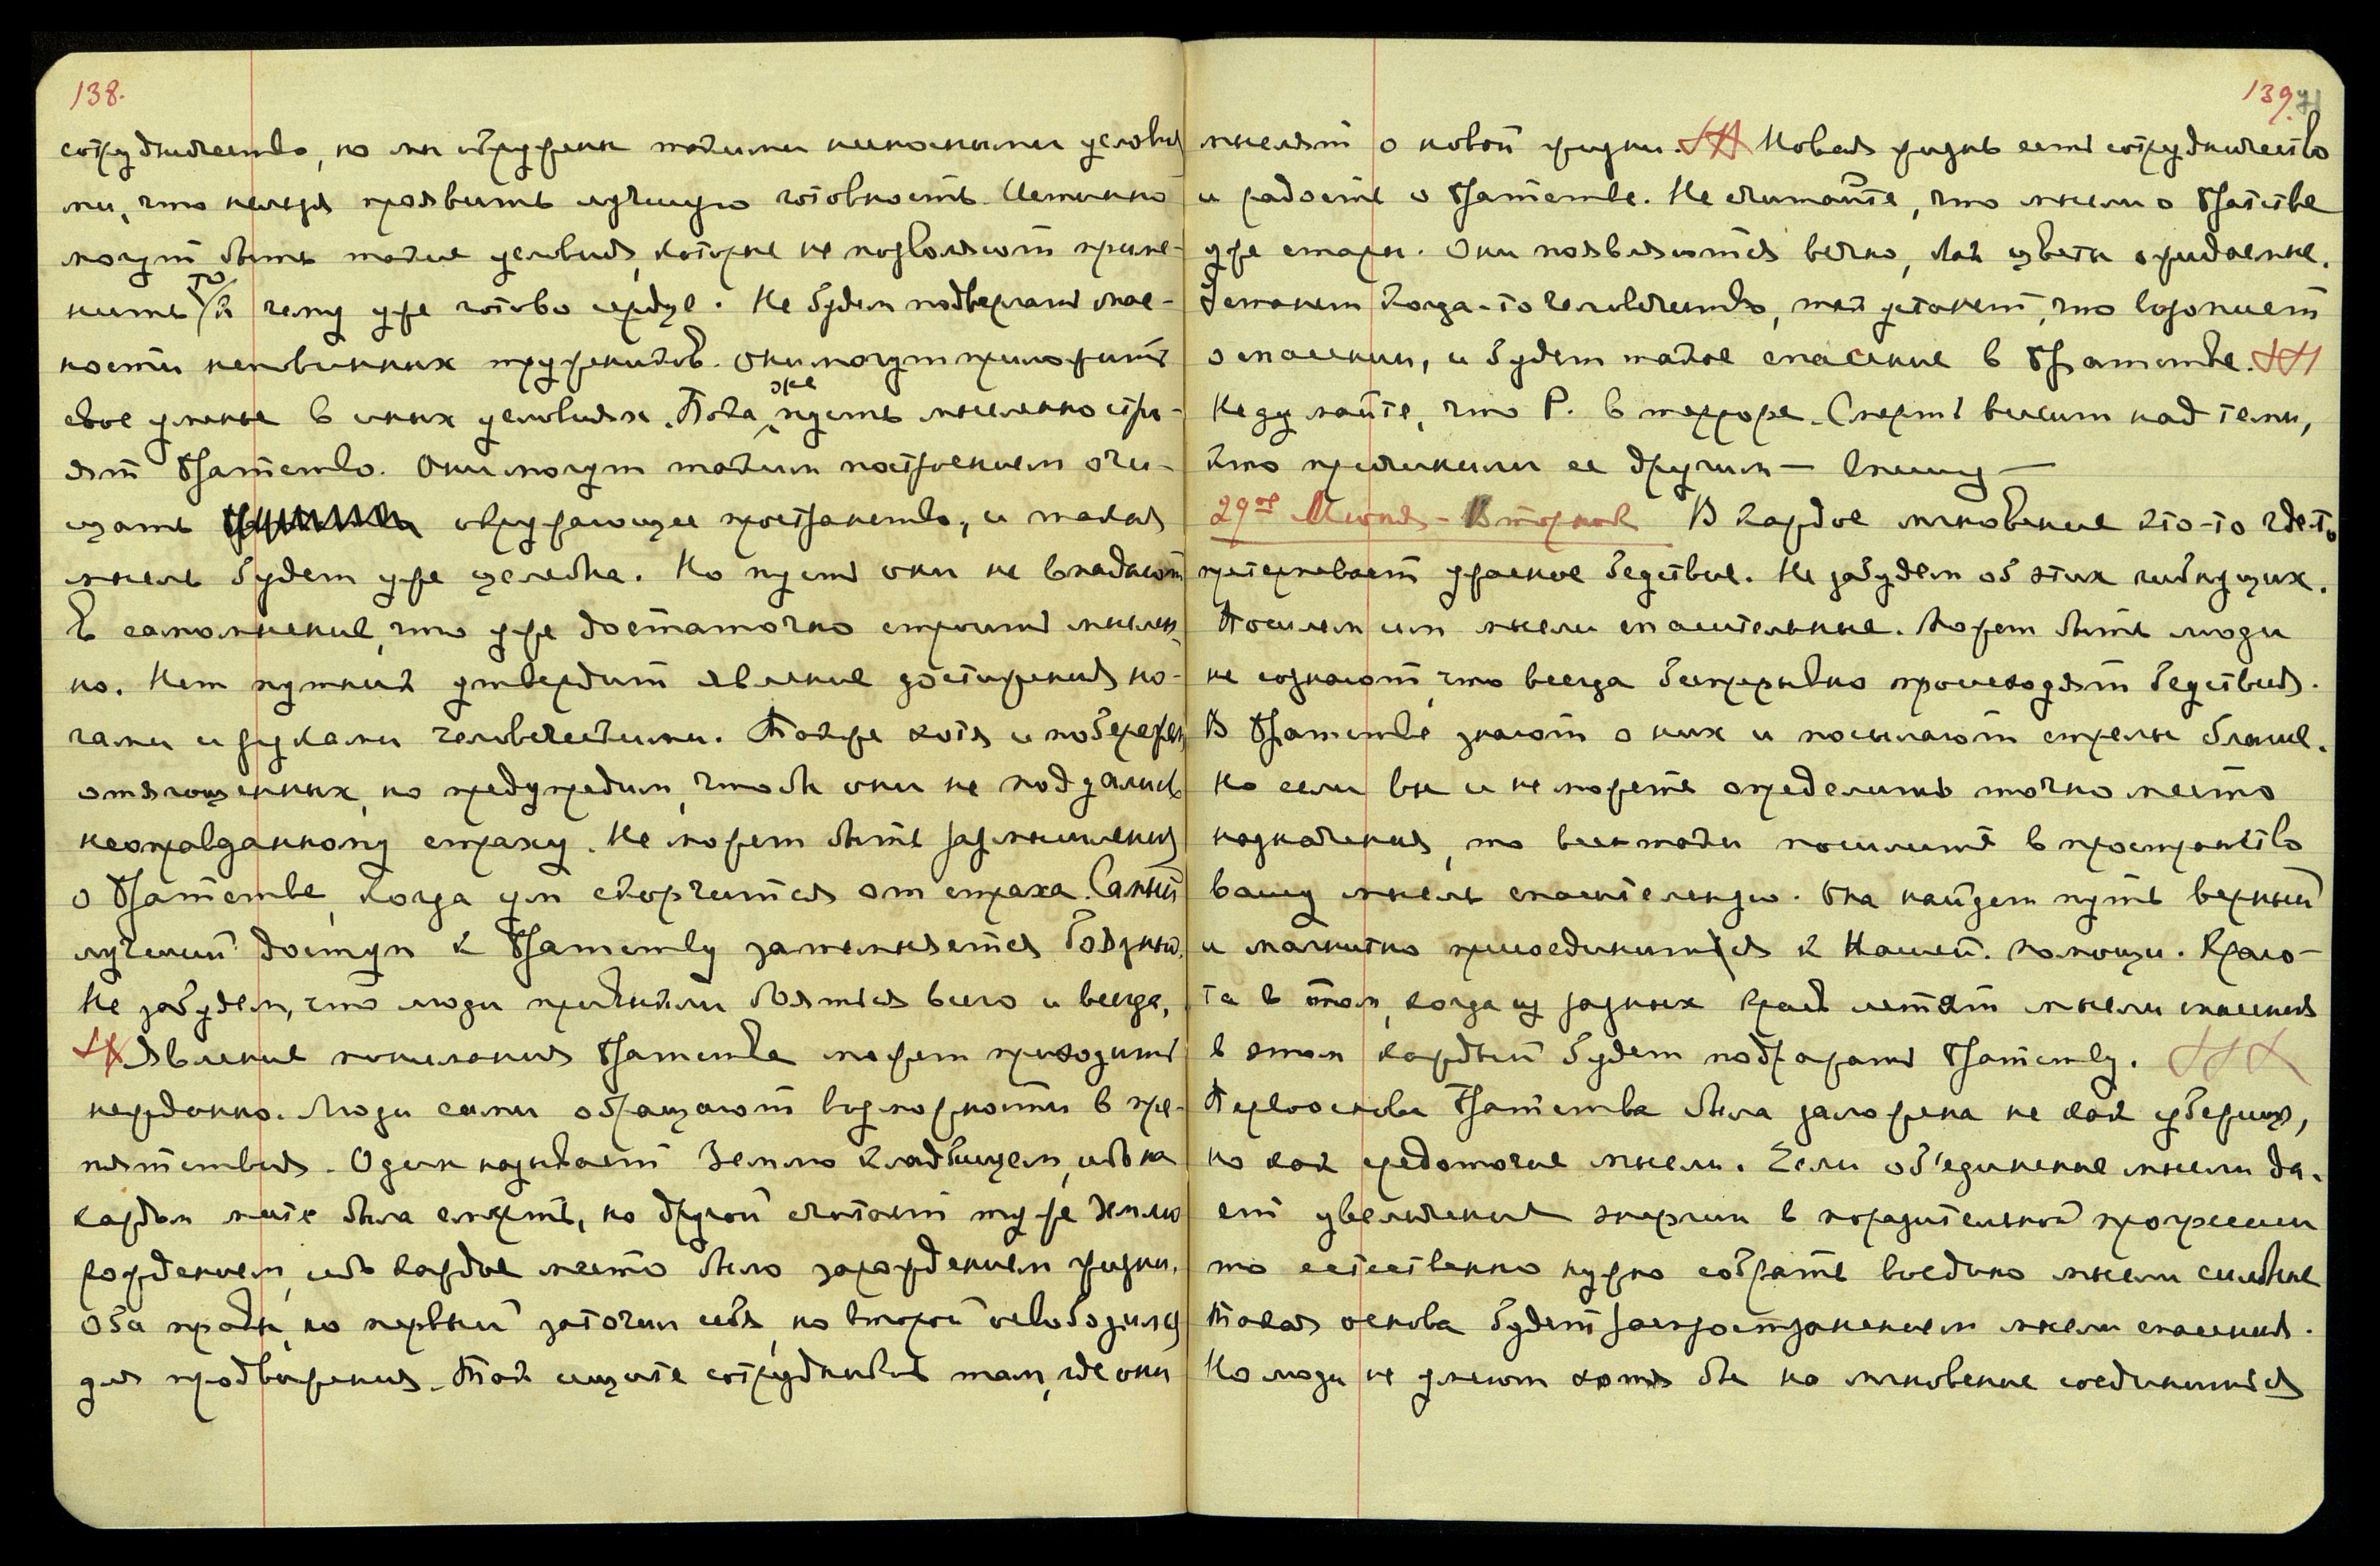 138.
сотрудничество, но мы окружены такими несносными условия
ми, что нельзя проявить лучшую готовность. Истинно
могут быть такие условия, которые не позволяют приме-
нить то к чему уже готово сердце. Не будем подвергать опас-
ности неповинных тружеников. Они могут приложить
свое уменье в иных условиях. Пока же пусть мысленно стро-
ят Братство. Они могут таким построением очи-
щать окружающее пространство, и такая
мысль будет уже целебна. Но пусть они не впадают
в самомнение, что уже достаточно строить мыслен
но. Нет путник утвердит явление достижения но-
гами и руками человеческими. Также хотя и побережем
отягощенных, но предупредим, чтобы они не поддались
неоправданному страху. Не может быть размышления
о Братстве, когда ум скорчится от страха. Самый
лучший доступ к Братству затемняется боязнью.
Не забудем, что люди привыкли бояться всего и всегда,
Явление посылания Братства может приходить
нежданно. Люди сами обращают возможности в пре-
пятствия. Один называет Землю кладбищем, ибо на
каждом месте была смерть, но другой считает ту же Землю
рождением, ибо каждое место было зарождением жизни.
Оба правы, но первый заточил себя, но второй освободился
для продвижения. Так ищите сотрудников там, где они
139.
71
мыслят о новой жизни. Новая жизнь есть сотрудничество
и радость о Братстве. Не считайте, что мысли о Братстве
уже стары. Они появляются вечно, как цветы ожидаемые.
Устанет когда-то человечество, так устанет, что возопиет
о спасении, и будет такое спасение в Братстве.
Не думайте, что Р. в терроре. Смерть висит над теми,
кто причинили ее другим — внешу —
29ое Июня - Вторник В каждое мгновение кто-то где-то
претерпевает ужасное бедствие. Не забудем об этих гибнущих.
Пошлем им мысли спасительные. Может быть люди
не сознают, что всегда беспрерывно происходят бедствия.
В Братстве знают о них и посылают стрелы благие.
Но если вы и не можете определить точно место
назначения, то всетаки пошлите в пространство
вашу мысль спасительную. Она найдет путь верный
и магнитно присоединится к Нашей. помощи. Красо-
та в том, когда из разных краев летят мысли спасения
в этом каждый будет подражать Братству.
Первооснова Братства была заложена не как убежище,
но как средоточие мысли. Если об'единение мысли да-
ет увеличение энергии в поразительной прогрессии
то естественно нужно собрать воедино мысли сильные
Такая основа будет распространением мысли спасения.
Но люди не умеют хотя бы на мгновение соединиться